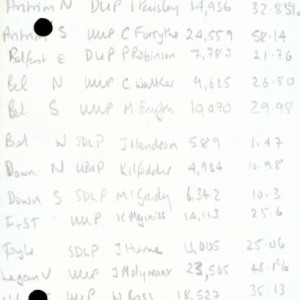 Antrim N DUP I Paisley 14,936 32.83%
Antrim S UUP C Forsythe 24,559 58.14
Belfast E DUP P Robinson 7,787 21.76
Bel N UUP C Walker 9,625 26.80
Bel S UUP M Smyth 10,070 29.98
Bel W SDLP J Hendron 589 1.47
Down N UPUP Kilfedder 4,934 10.98
Down S SDLP McGrady 6,342 10.3
F,ST UUP K Maginnis 14,113 25.6
Foyle SDLP J Hume 11,005 25.06
Lagan V UUP J Molyneaux 23,565 48.1%
UUP W Ross 18,527 35.13